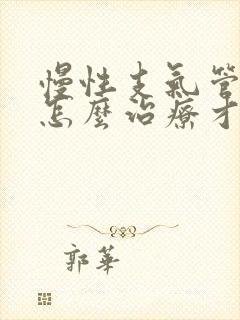 慢性支氣管
怎麼治療才
郭華